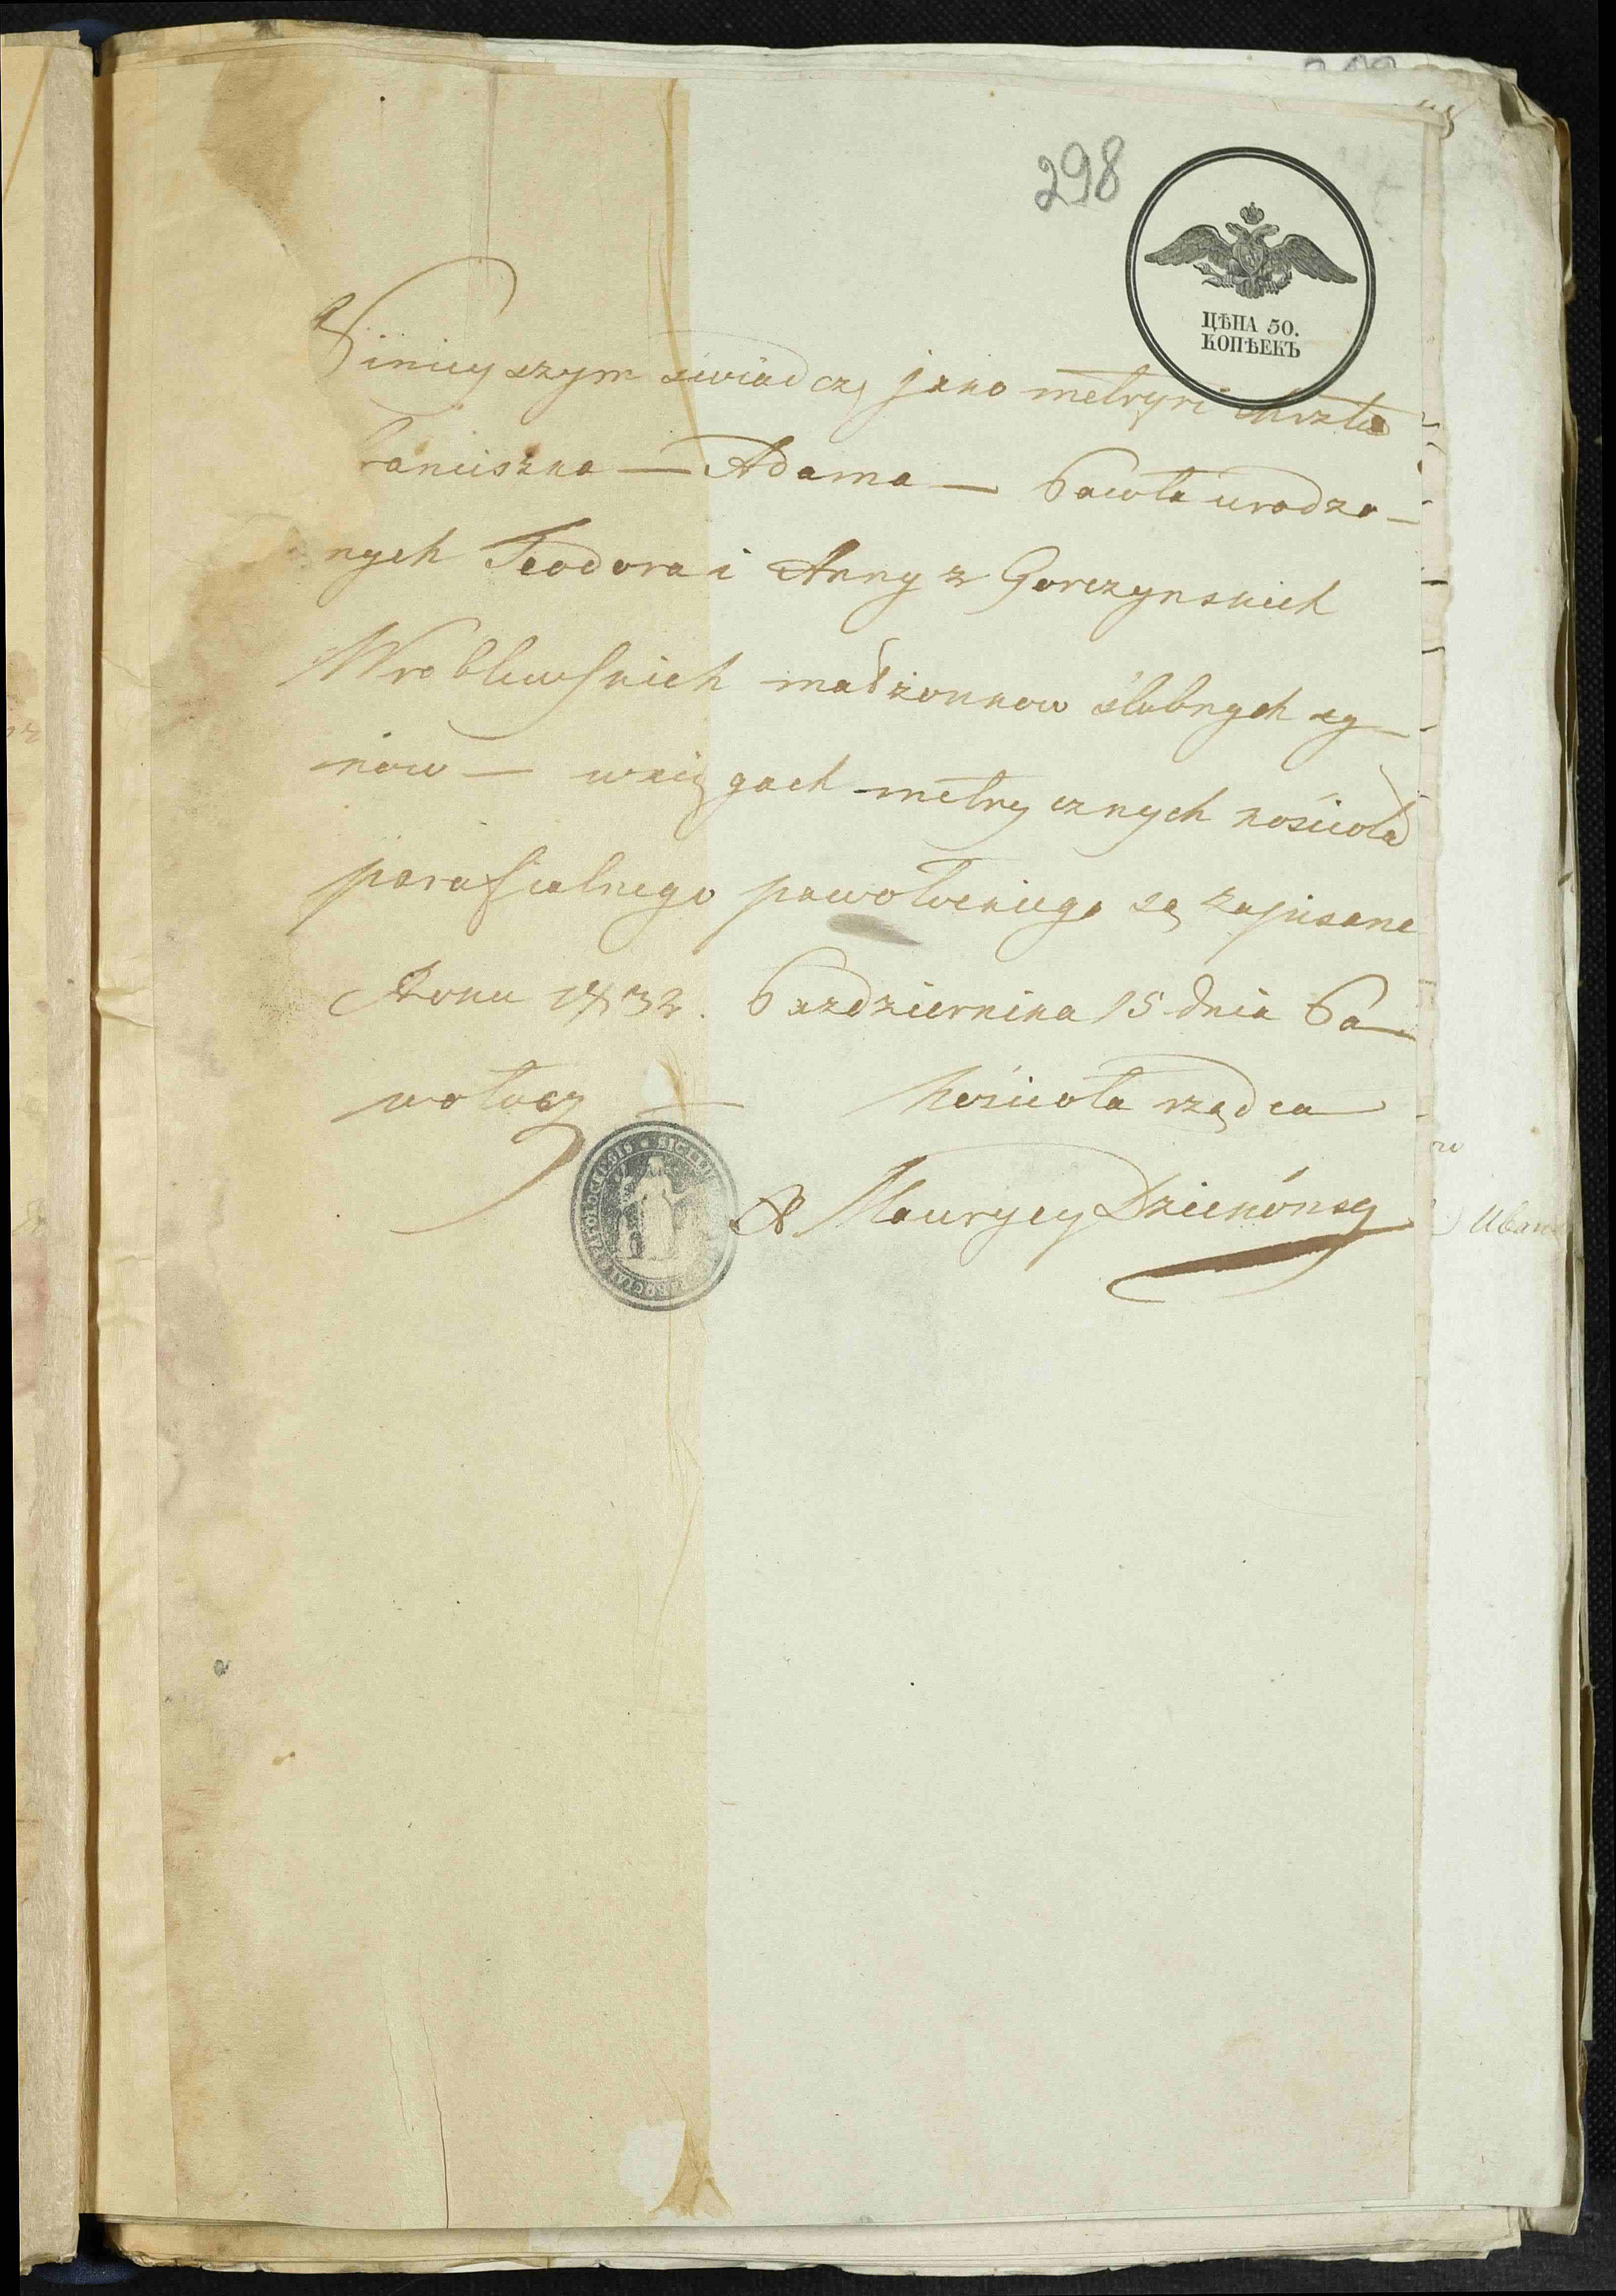 298
ЦѢНА 50.
КОПѢЕКЪ
Niniejszym świadczę jako metryki chrztu
Franciszka — Adama — Pawła urodzo-
nych Teodora i Anny z Gorczynskich
Wroblewskich małżonkow ślubnych sy-
now — w xięgach metrycznych kościoła
parafialnego pawołockiego są zapisane
Roku 1832. Pazdziernika 15 dnia Pa-
wołocz — Kościoła rządca
X Maurycy Dziekóński